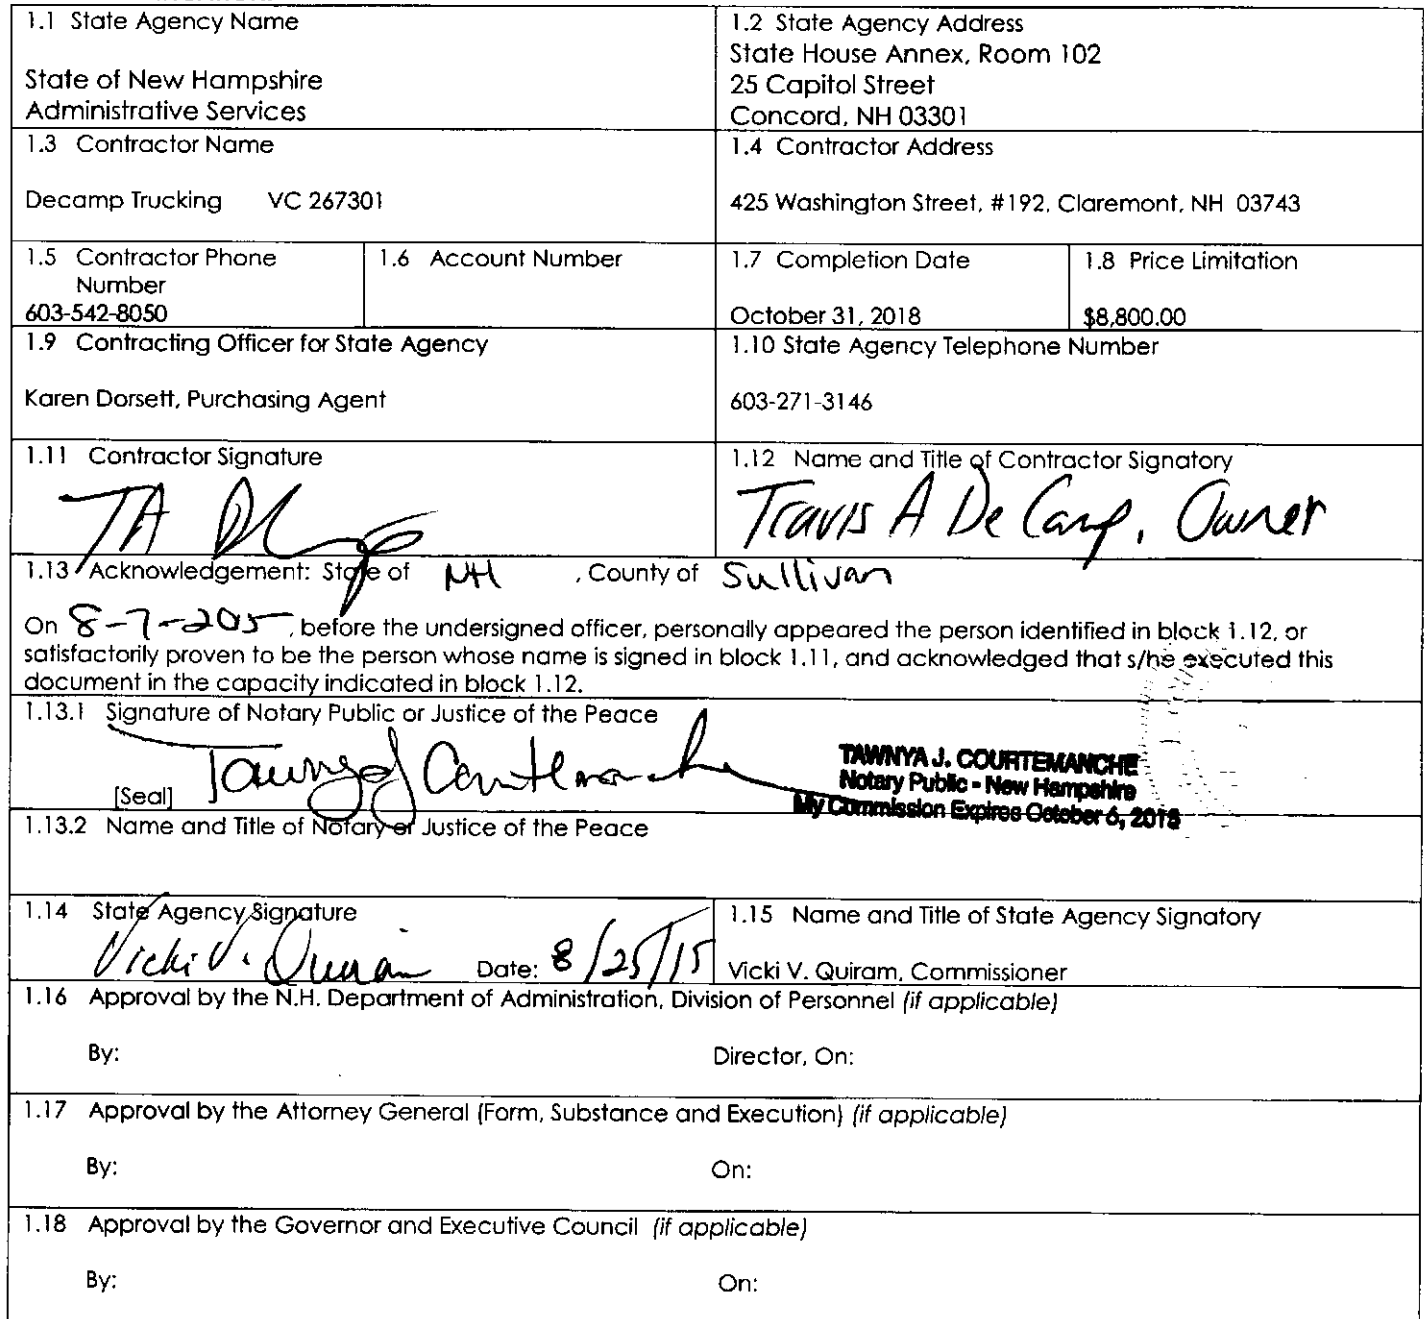 1.1 State Agency Name
State of New Hampshire
Administrative Services
1.2 State Agency Address
State House Annex, Room 102
25 Capitol Street
Concord, NH 03301
1.3 Contractor Name
Decamp Trucking VC 267301
1.4 Contractor Address
425 Washington Street, #192, Claremont, NH 03743
1.5 Contractor Phone
Number
603-542-8050
1.6 Account Number
1.7 Completion Date
October 31, 2018
1.8 Price Limitation
$8,800.00
1.9 Contracting Officer for State Agency
Karen Dorsett, Purchasing Agent
1.10 State Agency Telephone Number
603-271-3146
1.11 Contractor Signature
TA
1.12 Name and Title of Contractor Signatory
Travis A DeCamp, Owner
1.13 Acknowledgement: State of NH , County of Sullivan
On 8-7-2015, before the undersigned officer, personally appeared the person identified in block 1.12, or
satisfactorily proven to be the person whose name is signed in block 1.11, and acknowledged that s/he executed this
document in the capacity indicated in block 1.12.
1.13.1 Signature of Notary Public or Justice of the Peace
Tawnya J Courtemanche
[Seal]
TAWNYA J. COURTEMANCHE
Notary Public - New Hampshire
My Commission Expires October 6, 2018
1.13.2 Name and Title of Notary or Justice of the Peace
1.14 State Agency Signature
Vicki V. Quiram Date: 8/25/15
1.15 Name and Title of State Agency Signatory
Vicki V. Quiram, Commissioner
1.16 Approval by the N.H. Department of Administration, Division of Personnel (if applicable)
By: Director, On:
1.17 Approval by the Attorney General (Form, Substance and Execution) (if applicable)
By: On:
1.18 Approval by the Governor and Executive Council (if applicable)
By: On: